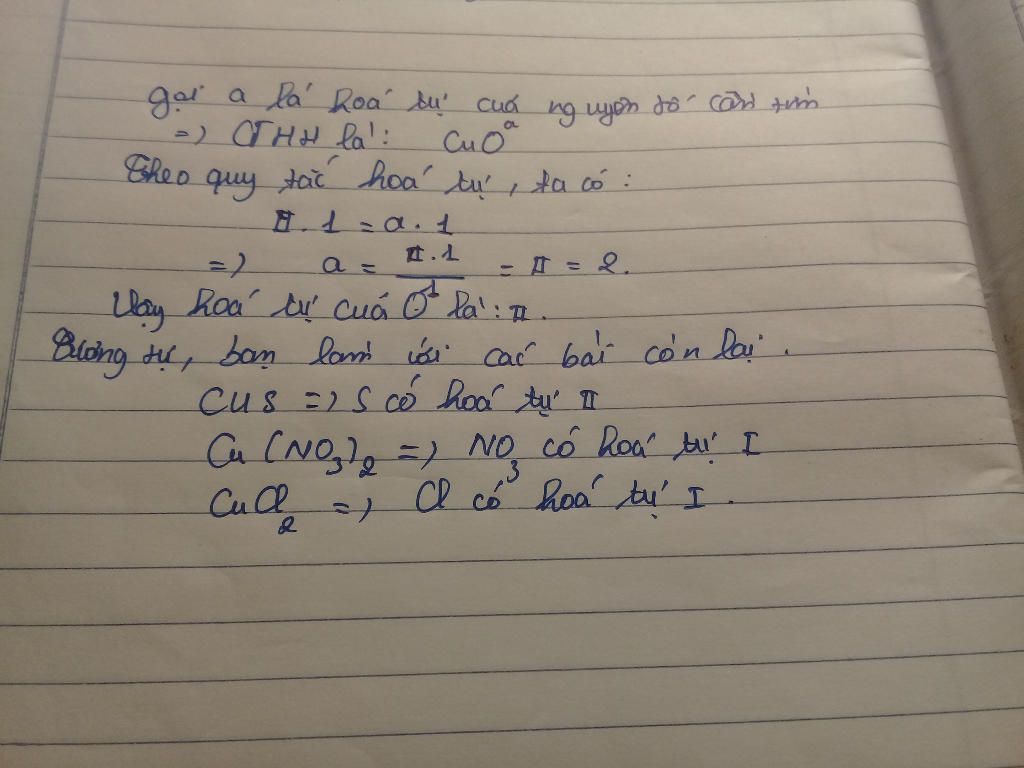 gọi a là hoá trị của nguyên tố cần tìm
=) CTHH là: CuOᵃ
Theo quy tắc hoá trị, ta có:
II.1 = a.1
=) a = II.1/1 = II = 2.
Vậy hoá trị của O là: II.
Tương tự, bạn làm với các bài còn lại.
CuS =) S có hoá trị II
Cu(NO₃)₂ =) NO₃ có hoá trị I
CuCl₂ =) Cl có hoá trị I.